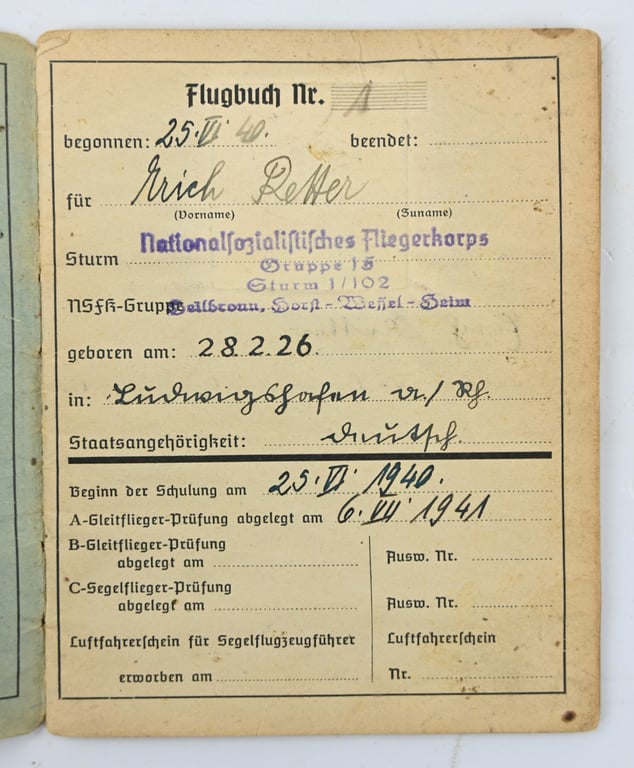 Flugbuch Nr. 1
begonnen: 25. VI 40. beendet:
für Erich Retter
(Vorname) (Zuname)
Nationalsozialistisches Fliegerkorps
Sturm
Gruppe 15
Sturm 1/102
NSFK-Gruppe Heilbronn, Horst-Wessel-Heim
geboren am: 28.2.26.
in: Ludwigshafen a./Rh.
Staatsangehörigkeit: deutsch.
Beginn der Schulung am 25. VI 1940.
A-Gleitflieger-Prüfung abgelegt am 6. VII 1941
B-Gleitflieger-Prüfung
abgelegt am Ausw. Nr.
C-Segelflieger-Prüfung
abgelegt am Ausw. Nr.
Luftfahrerschein für Segelflugzeugführer Luftfahrerschein
erworben am Nr.